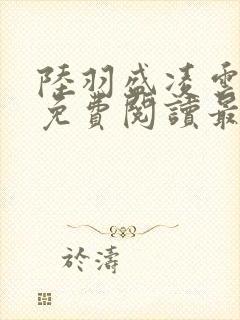 陸羽盛凌雲
免費閱讀最
於濤